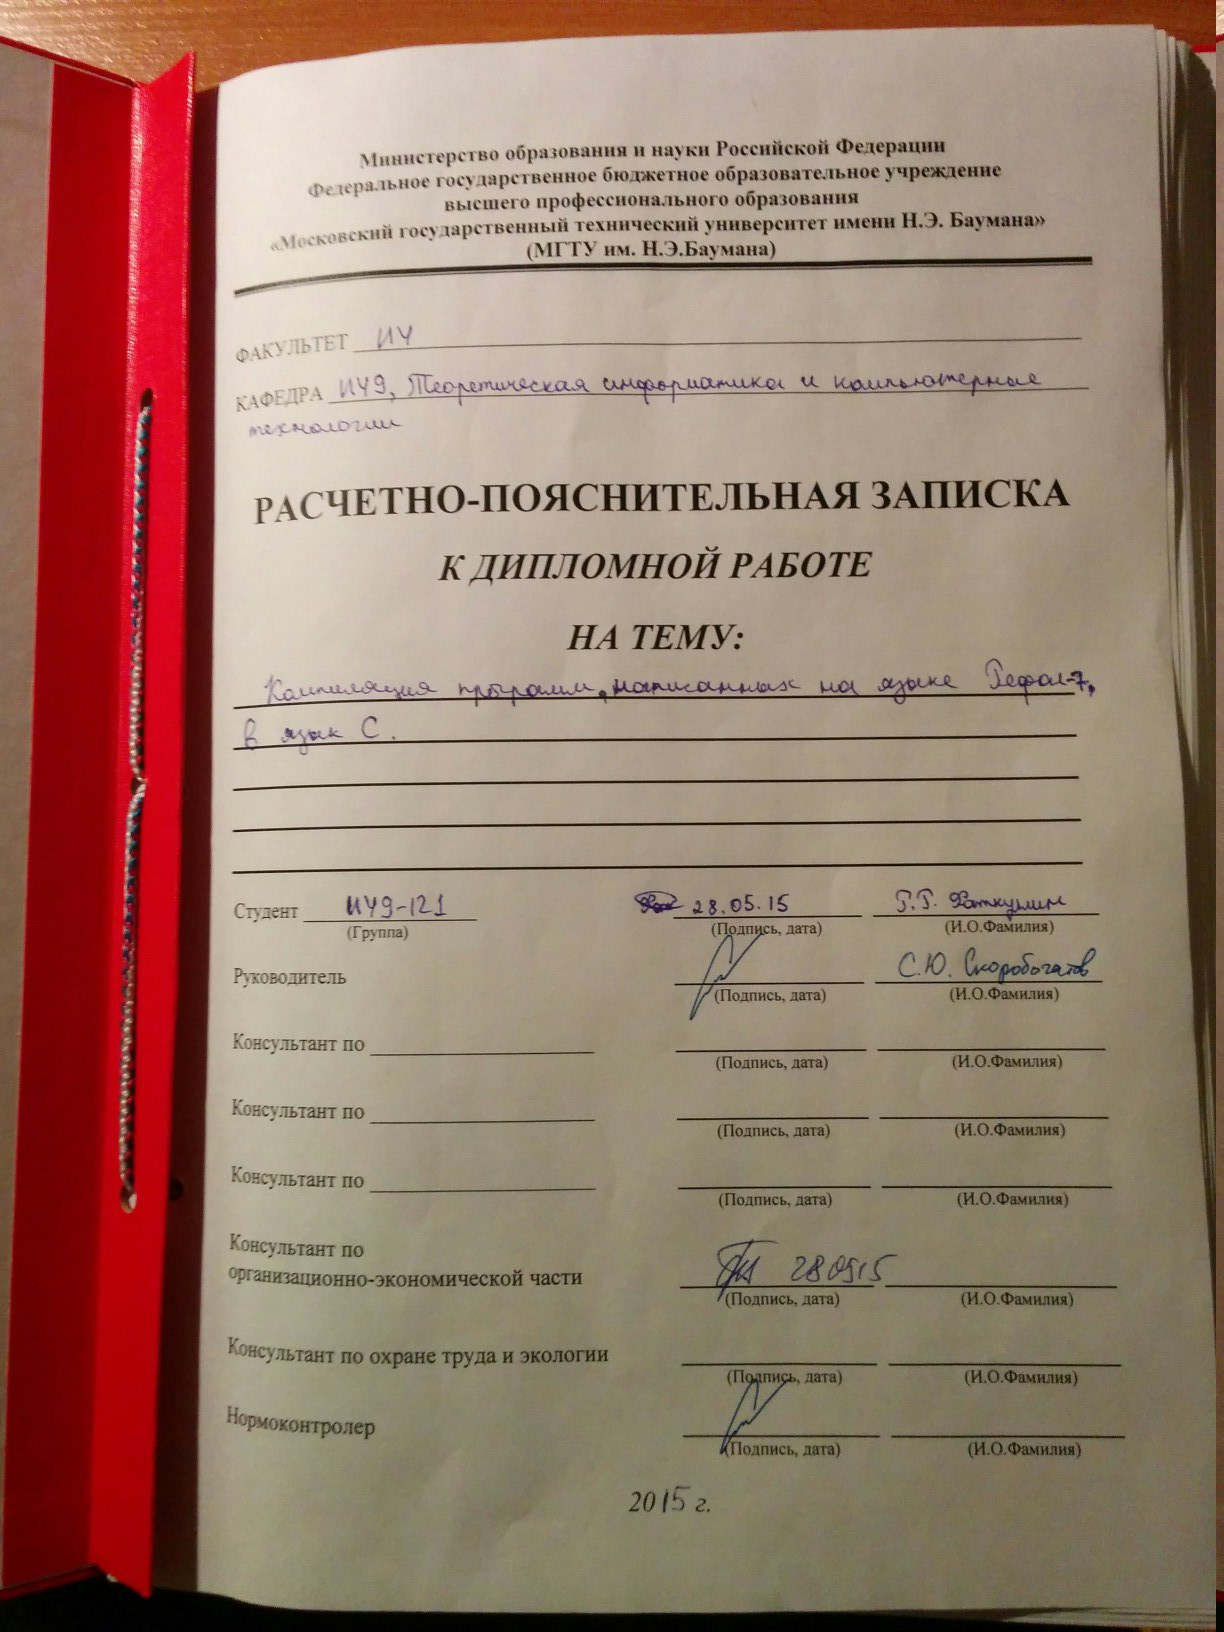 Министерство образования и науки Российской Федерации
Федеральное государственное бюджетное образовательное учреждение
высшего профессионального образования
«Московский государственный технический университет имени Н.Э. Баумана»
(МГТУ им. Н.Э.Баумана)
ФАКУЛЬТЕТ ИУ
КАФЕДРА ИУ9, Теоретическая информатика и компьютерные
технологии
РАСЧЕТНО-ПОЯСНИТЕЛЬНАЯ ЗАПИСКА
К ДИПЛОМНОЙ РАБОТЕ
НА ТЕМУ:
Компиляция программ, написанных на языке Рефал-7,
в язык С.
Студент ИУ9-121 28.05.15 Г.Г. Фаткулин
(Группа) (Подпись, дата) (И.О.Фамилия)
Руководитель С.Ю. Скоробогатов
(Подпись, дата) (И.О.Фамилия)
Консультант по
(Подпись, дата) (И.О.Фамилия)
Консультант по
(Подпись, дата) (И.О.Фамилия)
Консультант по
(Подпись, дата) (И.О.Фамилия)
Консультант по
организационно-экономической части 280515
(Подпись, дата) (И.О.Фамилия)
Консультант по охране труда и экологии
(Подпись, дата) (И.О.Фамилия)
Нормоконтролер
(Подпись, дата) (И.О.Фамилия)
2015 г.